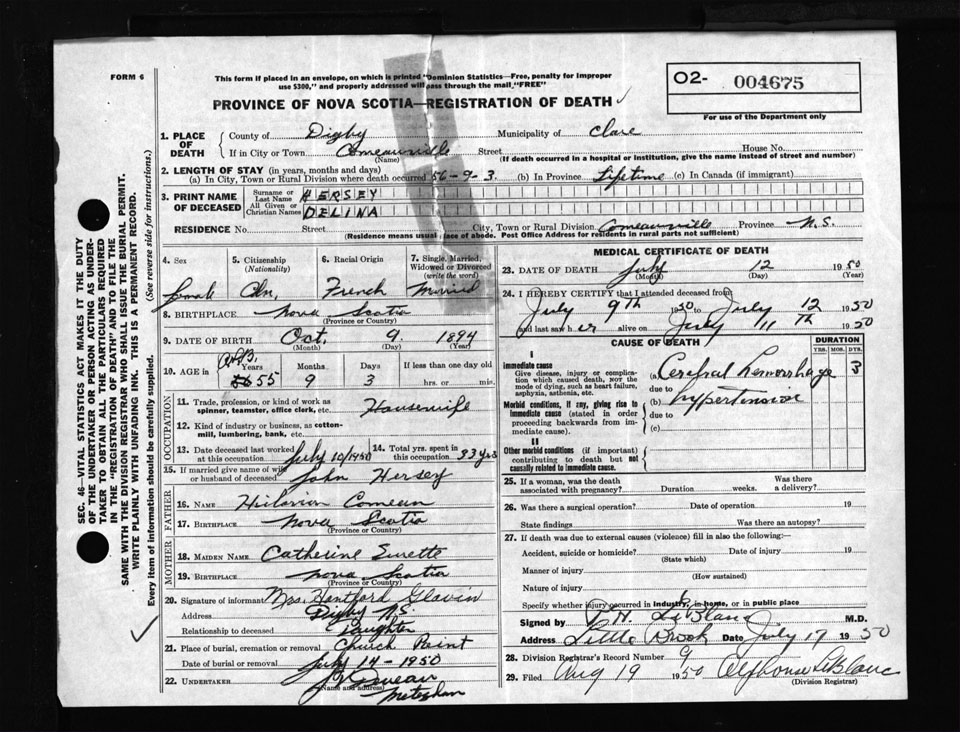 FORM 6
This form if placed in an envelope, on which is printed "Dominion Statistics—Free, penalty for improper
use $300," and properly addressed will pass through the mail, "FREE"
O2- 004675
For use of the Department only
PROVINCE OF NOVA SCOTIA—REGISTRATION OF DEATH
1. PLACE OF DEATH { County of Digby Municipality of Clare
If in City or Town Comeauville Street House No.
(Name) (If death occurred in a hospital or institution, give the name instead of street and number)
2. LENGTH OF STAY (in years, months and days)
(a) In City, Town or Rural Division where death occurred 56-9-3. (b) In Province Lifetime (c) In Canada (if immigrant)
3. PRINT NAME OF DECEASED { Surname or Last Name HERSEY
All Given or Christian Names DELINA
RESIDENCE No. Street City, Town or Rural Division Comeauville Province N.S.
(Residence means usual place of abode. Post Office Address for residents in rural parts not sufficient)
4. Sex female
5. Citizenship (Nationality) Cdn.
6. Racial Origin French
7. Single, Married, Widowed or Divorced (write the word) Married
8. BIRTHPLACE Nova Scotia
(Province or Country)
9. DATE OF BIRTH Oct. 9 1894
(Month) (Day) (Year)
10. AGE IN Years 55 Months 9 Days 3 If less than one day old hrs. or min.
OCCUPATION
11. Trade, profession, or kind of work as spinner, teamster, office clerk, etc. Housewife
12. Kind of industry or business, as cotton-mill, lumbering, bank, etc.
13. Date deceased last worked at this occupation July 10/1950
14. Total yrs. spent in this occupation 33 yrs
15. If married give name of wife or husband of deceased John Hersey
FATHER
16. NAME Hilarion Comeau
17. BIRTHPLACE Nova Scotia
(Province or Country)
MOTHER
18. MAIDEN NAME Catherine Surette
19. BIRTHPLACE Nova Scotia
(Province or Country)
20. Signature of informant Mrs. Hantford Glavin
Address Digby N.S.
Relationship to deceased Daughter
21. Place of burial, cremation or removal Church Point
Date of burial or removal July 14 - 1950
22. UNDERTAKER Meteghan
(Name and address)
MEDICAL CERTIFICATE OF DEATH
23. DATE OF DEATH July 12 1950
(Month) (Day) (Year)
24. I HEREBY CERTIFY that I attended deceased from
July 9th 1950 to July 12 1950
and last saw her alive on July 11th 1950
CAUSE OF DEATH
DURATION
YRS. MOS. DYS.
I
Immediate cause
Give disease, injury or complication which caused death, NOT the mode of dying, such as heart failure, asphyxia, asthenia, etc.
(a) Cerebral hemorrhage 3
due to
Morbid conditions, if any, giving rise to immediate cause (stated in order proceeding backwards from immediate cause).
(b) hypertension
due to
(c)
II
Other morbid conditions (if important) contributing to death but not causally related to immediate cause.
25. If a woman, was the death associated with pregnancy? Duration weeks. Was there a delivery?
26. Was there a surgical operation? Date of operation 19
State findings Was there an autopsy?
27. If death was due to external causes (violence) fill in also the following:
Accident, suicide or homicide? Date of injury 19
(State which)
Manner of injury
(How sustained)
Nature of injury
Specify whether injury occurred in industry, in home, or in public place
Signed by P.H. LeBlanc M.D.
Address Little Brook Date July 17 1950
28. Division Registrar's Record Number 9
29. Filed Aug 19 1950 Alphonse LeBlanc
(Division Registrar)
SEC. 46—VITAL STATISTICS ACT MAKES IT THE DUTY
OF THE UNDERTAKER OR PERSON ACTING AS UNDER-
TAKER TO OBTAIN ALL THE PARTICULARS REQUIRED
IN THE "REGISTRATION OF DEATH" AND TO FILE THE
SAME WITH THE DIVISION REGISTRAR WHO SHALL ISSUE THE BURIAL PERMIT.
WRITE PLAINLY WITH UNFADING INK. THIS IS A PERMANENT RECORD.
Every item of information should be carefully supplied. (See reverse side for instructions.)